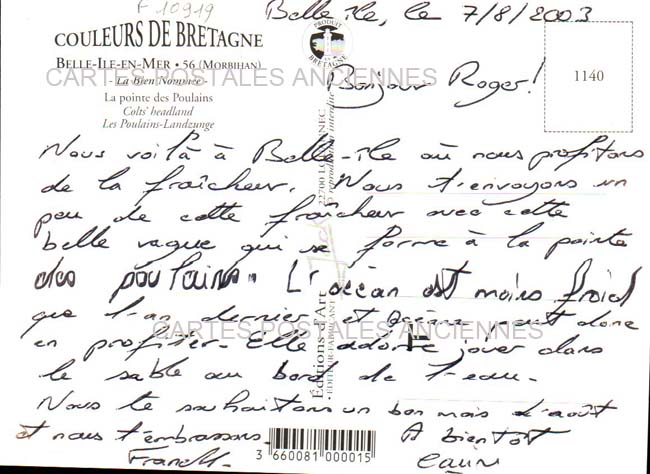 F 10919
Belle île, le 7/8/2003
COULEURS DE BRETAGNE
BELLE-ILE-EN-MER • 56 (MORBIHAN)
- La Bien Nommée -
La pointe des Poulains
Colts' headland
Les Poulains-Landzunge
PRODUIT EN BRETAGNE
1140
CARTES POSTALES ANCIENNES
Bonjour Roger!
Nous voilà à Belle-île où nous profitons
de la fraîcheur. Nous t'envoyons un
peu de cette fraîcheur avec cette
belle vague qui se forme à la pointe
des poulains. L'océan est moins froid
que l'an dernier et peut donc
en profiter. Elle adore jouer dans
le sable au bord de l'eau.
CARTES POSTALES ANCIENNES
Nous te souhaitons un bon mois d'août
et nous t'embrassons. A bientôt
Franck.
Editions d'Art
EDITEUR-FABRICANT
22700
reproduction interdite
3 660081 000015